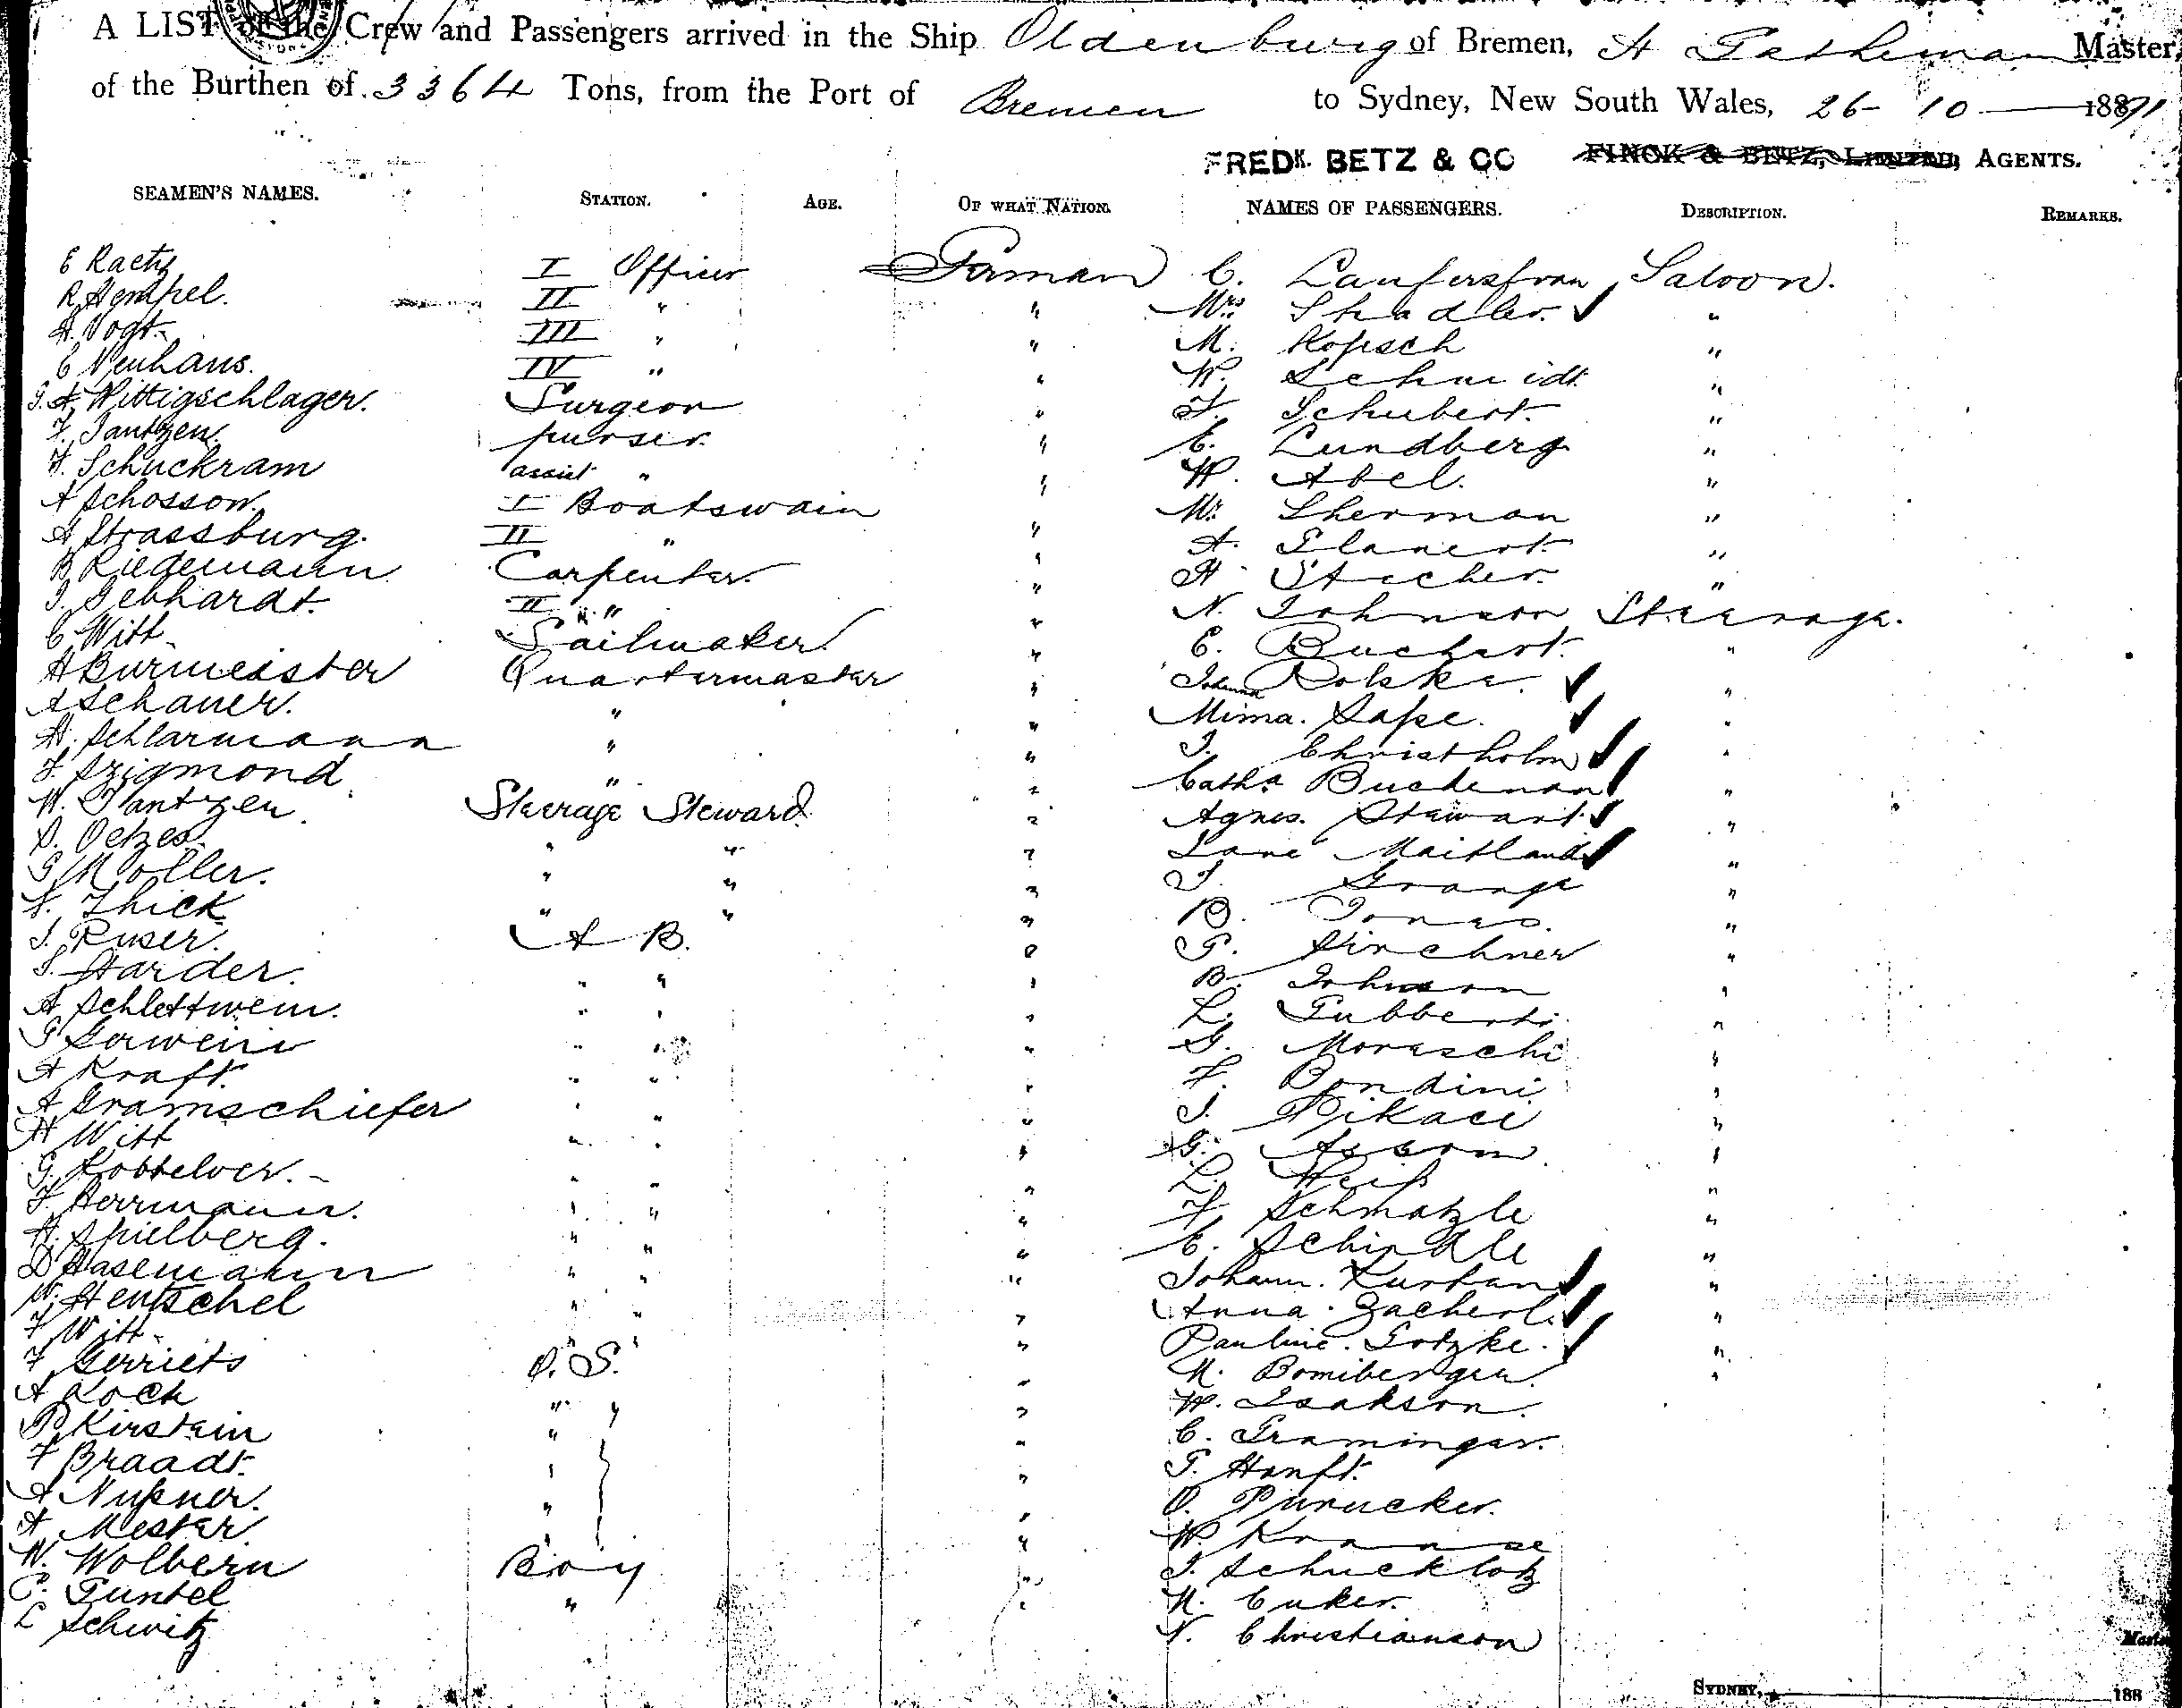 A LIST of the Crew and Passengers arrived in the Ship Oldenburg of Bremen, H Master,
of the Burthen of 3364 Tons, from the Port of Bremen to Sydney, New South Wales, 26- 10 1891
FREDK. BETZ & CO FINCK & BETZ, LIMITED, AGENTS.
SEAMEN'S NAMES. STATION. AGE. OF WHAT NATION. NAMES OF PASSENGERS. DESCRIPTION. REMARKS.
E Raetz I Officer German C. Saloon.
R Hempel. II " " Mrs Shadler. "
H. Vogt. III " " M. Kopsch "
C Neuhaus. IV " " W. Schmidt "
Wittigschlager. Surgeon " F. Schubert. "
F. Jantzen. purser. " E. Lundberg "
H. Schuckram assist " " W. Abel. "
A Schosson. I Boatswain Mr. Sherman "
A Strassburg. II " " A. "
B Riedemann Carpenter. " H. Stecher. "
J. Gebhardt. II " " N. Johnson Steerage.
C Witt Sailmaker " E. Buchert. "
H Burmeister Quartermaster " Johanna Polska. "
A Schauer. " " Mima. Sape. "
H. Schlarmann " " J. Christholm "
F. Szigmond " " Cath. Buchanan "
W. Jantzen Steerage Steward " Agnes. Stewart "
D. Oetzes. " " " Jane Maitland "
G Moller. " " " J. Grange "
N. Thick " " " B. Jonas. "
J. Ruser. A B. " G. Kirchner "
J. Harder. " " " B. Johnson "
A Schlettwein. " " " L. Gubberti "
G Gerwein " " " G. Moraschi "
A Kraft. " " " F. Bondini "
A Gramschiefer " " " J. Pikaci "
H Witt " " " G. "
G. " " " L. Heiß "
F. Herrmann. " " " F. Schmatzle "
H. Spielberg. " " " E. Schindele "
D Hasemann " " " Johann. Kurban "
W. Hentschel " " " Anna. Zacherl. "
F Witt " " " Pauline. Gotzke. "
F Gerriets O. S. " M. Bomibergen "
A Koch " " " W. Isakson.
P Kirstein " " C. Graminger.
F Braadt. " " G. Hanft.
A Nußner. " " O. Purucker.
A Mester " " W. Krause
W. Wolbern Boy " J. Schucklotz
C. Guntel " " M. Cuker.
L Schwitz N. Christianson
SYDNEY, 188